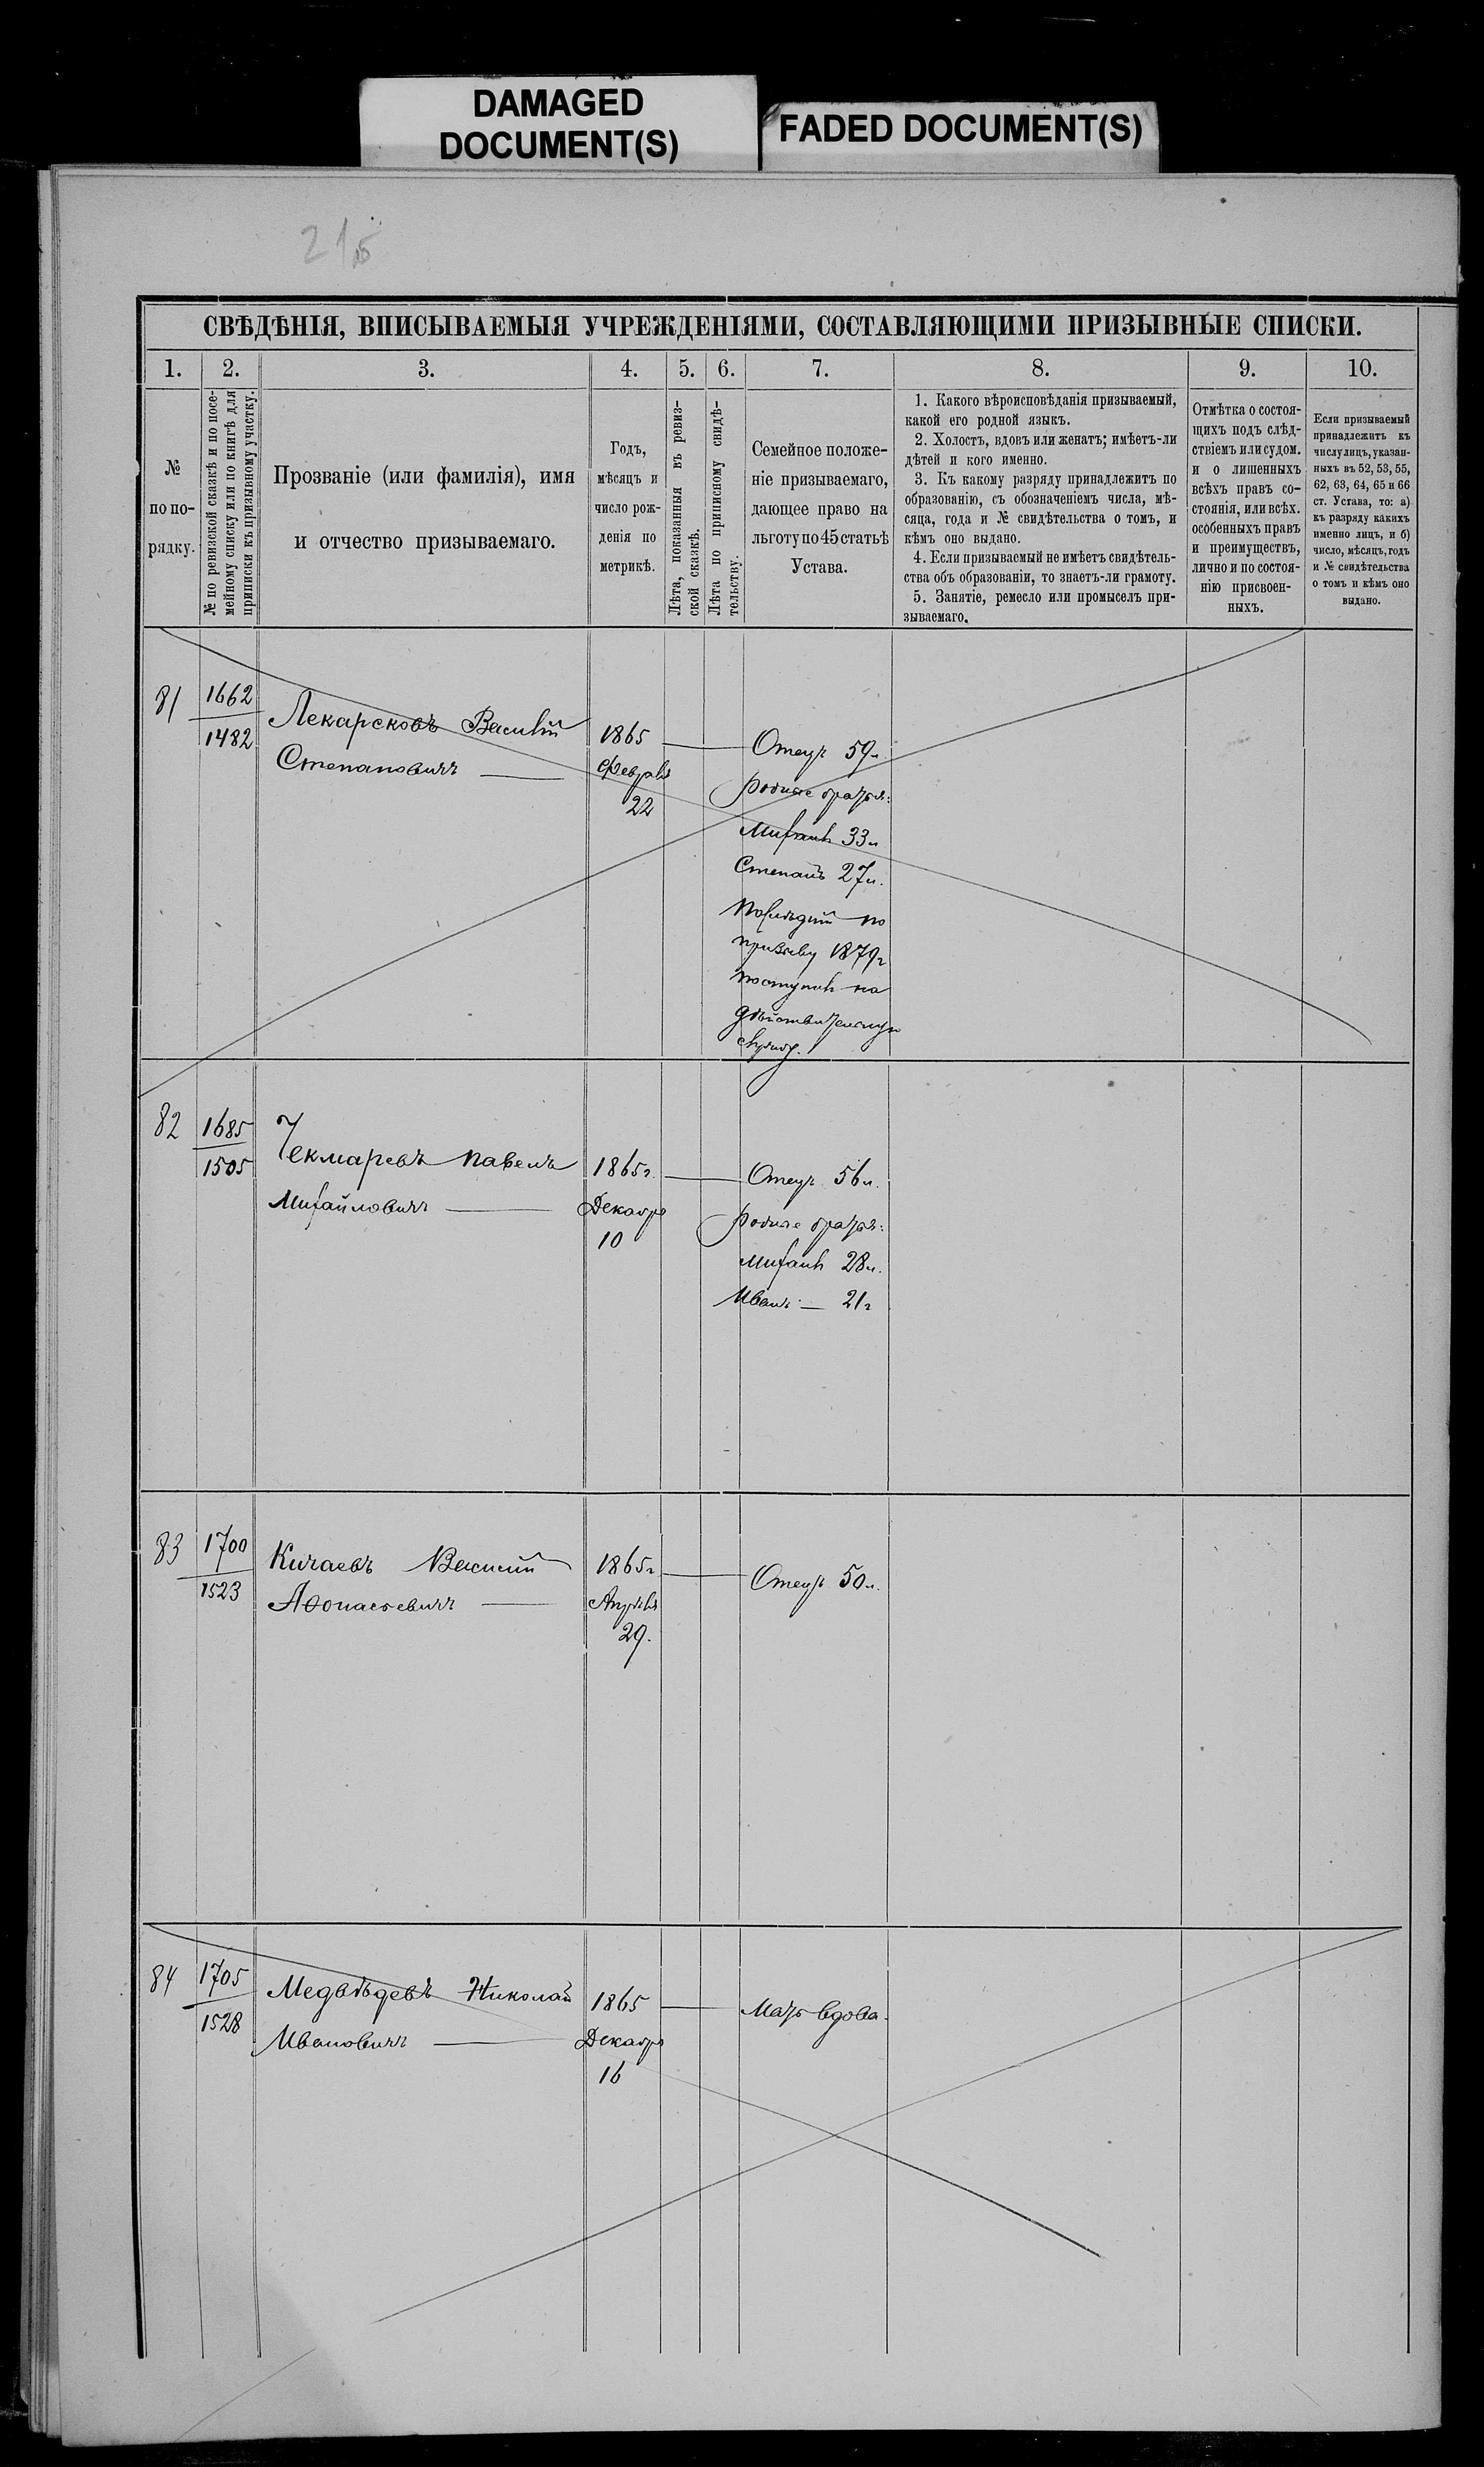 DAMAGED
DOCUMENT(S)
FADED DOCUMENT(S)
215
СВѢДѢНІЯ, ВПИСЫВАЕМЫЯ УЧРЕЖДЕНІЯМИ, СОСТАВЛЯЮЩИМИ ПРИЗЫВНЫЕ СПИСКИ.
1. 2. 3. 4. 5. 6. 7. 8. 9. 10.
№
по по-
рядку.
№ по ревизской сказкѣ и по посе-
мейному списку или по книгѣ для
приписки къ призывному участку.
Прозваніе (или фамилія), имя
и отчество призываемаго.
Годъ,
мѣсяцъ и
число рож-
денія по
метрикѣ.
Лѣта, показанныя въ ревиз-
ской сказкѣ.
Лѣта по приписному свидѣ-
тельству.
Семейное положе-
ніе призываемаго,
дающее право на
льготу по 45 статьѣ
Устава.
1. Какого вѣроисповѣданія призываемый,
какой его родной языкъ.
2. Холостъ, вдовъ или женатъ; имѣетъ-ли
дѣтей и кого именно.
3. Къ какому разряду принадлежитъ по
образованію, съ обозначеніемъ числа, мѣ-
сяца, года и № свидѣтельства о томъ, и
кѣмъ оно выдано.
4. Если призываемый не имѣетъ свидѣтель-
ства объ образованіи, то знаетъ-ли грамоту.
5. Занятіе, ремесло или промыселъ при-
зываемаго.
Отмѣтка о состоя-
щихъ подъ слѣд-
ствіемъ или судом.
и о лишенныхъ
всѣхъ правъ со-
стоянія, или всѣх.
особенныхъ правъ
и преимуществъ,
лично и по состоя-
нію присвоен-
ныхъ.
Если призываемый
принадлежитъ къ
числу лицъ, указан-
ныхъ въ 52, 53, 55,
62, 63, 64, 65 и 66
ст. Устава, то: а)
къ разряду какихъ
именно лицъ, и б)
число, мѣсяцъ, годъ
и № свидѣтельства
о томъ и кѣмъ оно
выдано.
81
1662
1482
Лекарсковъ Василій
Степановичъ
1865
Февраля
22
Отецъ 59л
родные братья:
Михаилъ 33л
Степанъ 27л.
Послѣдній по
призыву 1879г
поступилъ на
дѣйствительную
службу.
82
1685
1505
Чекмаревъ Павелъ
Михайловичъ
1865г.
Декабря
10
Отецъ 56л.
родные братья:
Михаилъ 28л.
Иванъ — 21г
83
1700
1523
Кичаевъ Василій
Афонасьевичъ
1865г
Апрѣля
29.
Отецъ 50л.
84
1705
1528
Медвѣдевъ Николай
Ивановичъ
1865
Декабря
16
Мать вдова.